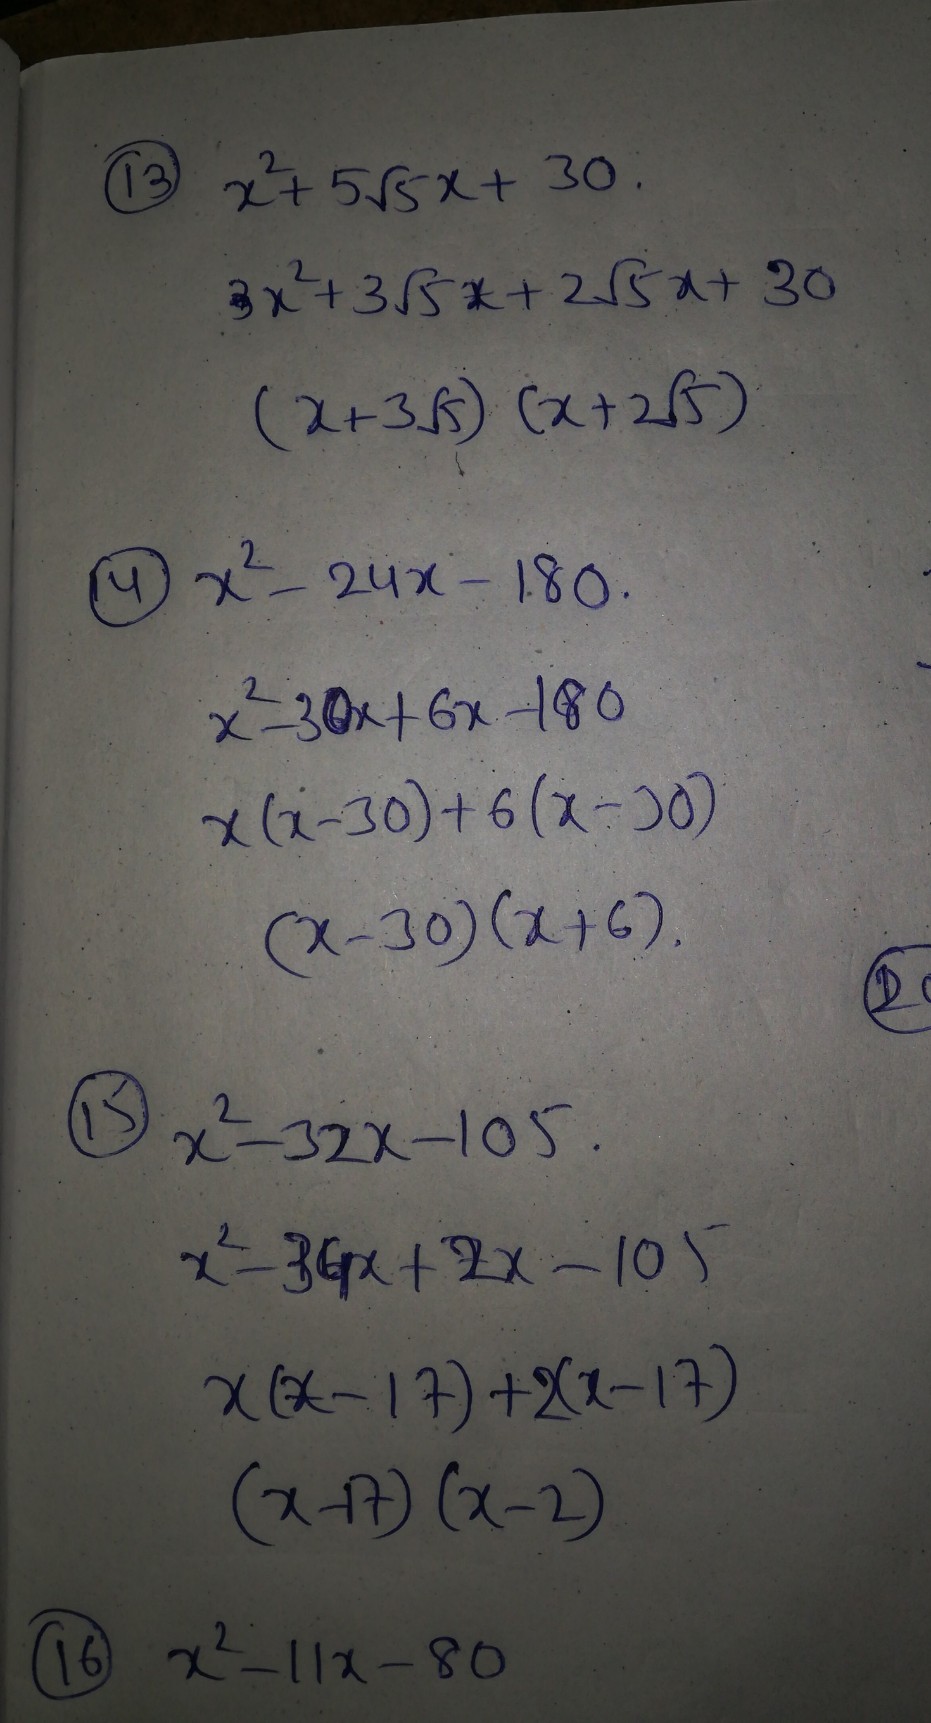 13 x²+ 5√5x+ 30.
3x²+3√5x+2√5x+ 30
(x+3√5) (x+2√5)
14 x²- 24x- 180.
x²-30x+6x-180
x(x-30)+6(x-30)
(x-30)(x+6).
15 x²-32x-105.
x²-34x+2x-105
x(x-17)+2(x-17)
(x-17)(x-2)
16 x²-11x-80